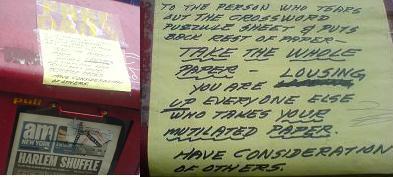 FREE
DAILY
HAVE CONSIDERATION
OF OTHERS.
pull
am
NEW YORK
HARLEM SHUFFLE
TO THE PERSON WHO TEARS
OUT THE CROSSWORD
PUZZULE SHEET & PUTS
BACK REST OF PAPER -
TAKE THE WHOLE
PAPER - LOUSING
YOU ARE
UP EVERYONE ELSE
WHO TAKES YOUR
MUTILATED PAPER.
HAVE CONSIDERATION
OF OTHERS.